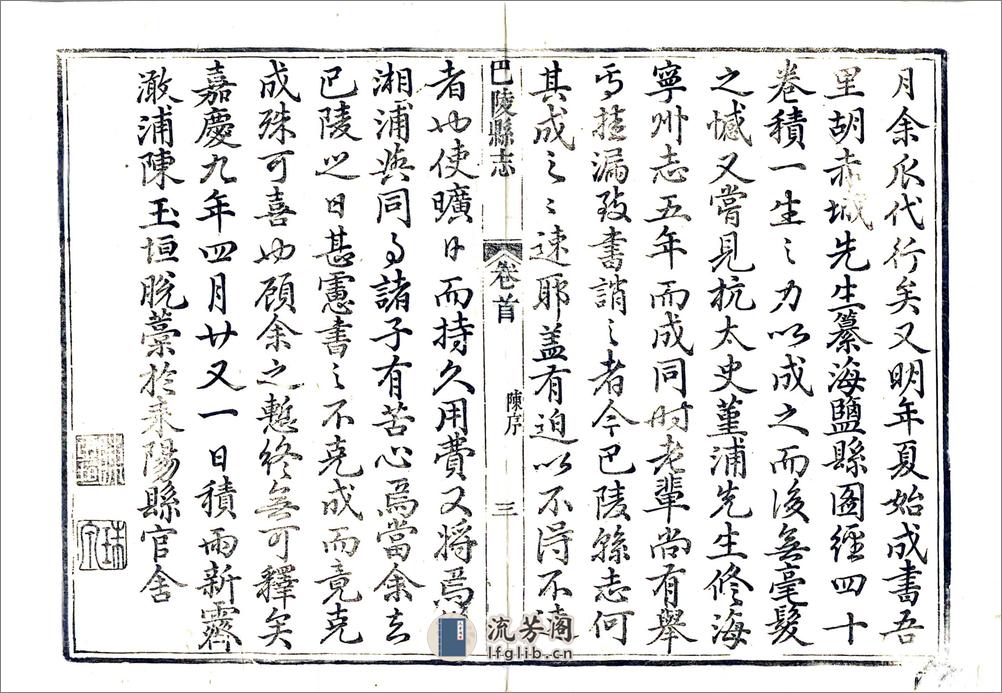 月余瓜代行矣又明年夏始成書吾
里胡赤城先生纂海鹽縣圖經四十
卷積一生之力以成之而後無毫髮
之憾又嘗見杭太史堇浦先生修海
寧州志五年而成同时老輩尚有舉
其挂漏致書誚之者今巴陵縣志何
其成之之速耶盖有迫以不得不速
巴陵縣志
卷首
陳序
三
者也使曠日而持久用費又將焉
湘浦與同事諸子有苦心焉當余去
巴陵之日甚慮書之不克成而竟克
成殊可喜也顧余之慙終無可釋矣
嘉慶九年四月廿又一日積雨新霽
澉浦陳玉垣脫藳於耒陽縣官舍
流芳阁
lfglib.cn